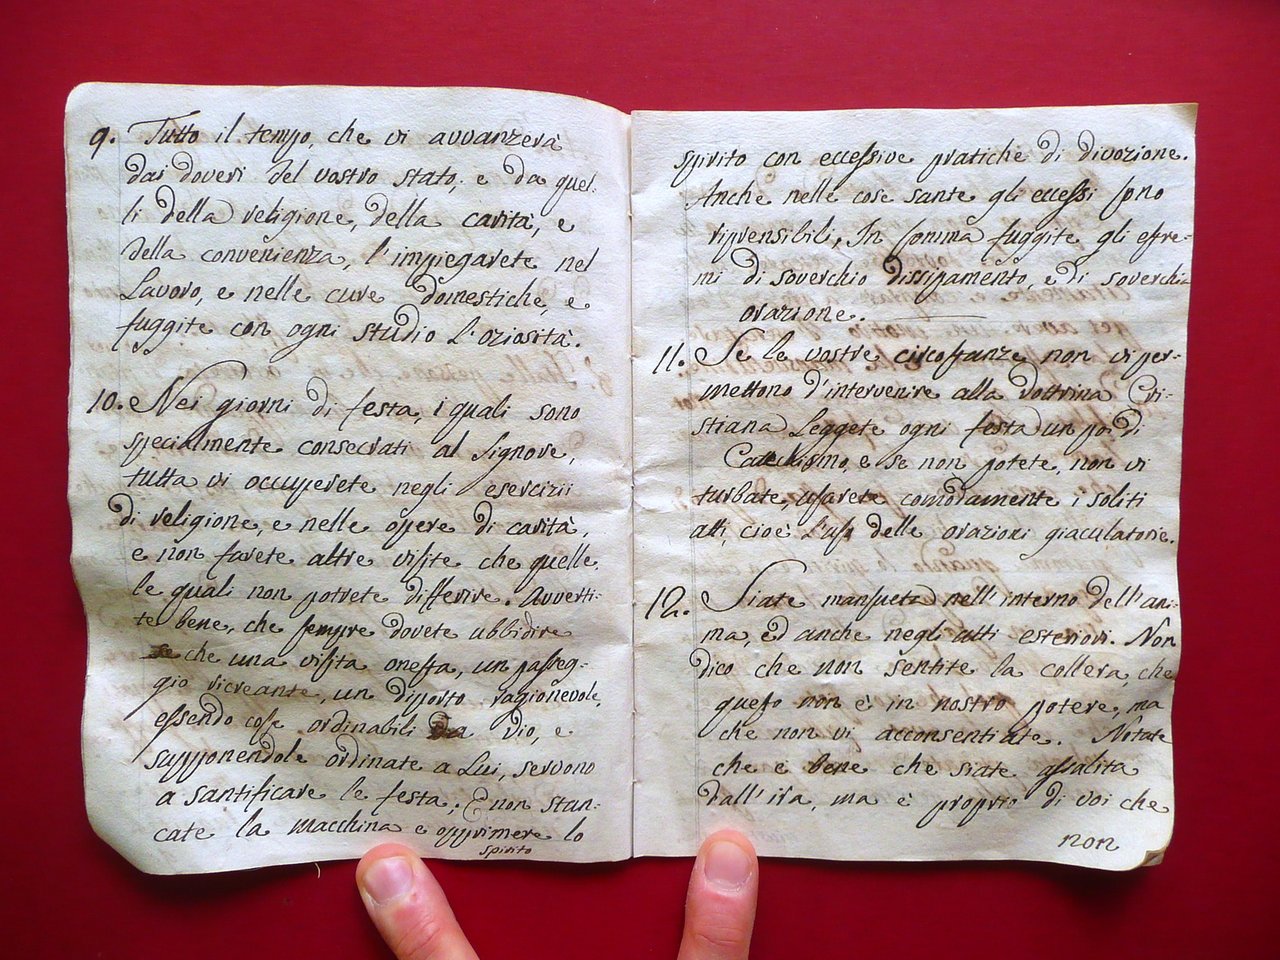 9. Tutto il tempo, che vi avvanzerà
dai doveri del vostro stato, e da quel-
li della religione, della carità, e
della convenienza, l'impiegarete nel
Lavoro, e nelle cure domestiche, e
fuggite con ogni studio l'oziosità.
10. Nei giorni di festa, i quali sono
specialmente consecrati al Signore,
tutta vi occuperete negli esercizii
di religione, e nelle opere di carità,
e non farete altre visite che quelle
le quali non potrete differire. Avverti-
te bene, che sempre dovete ubbidire
che una visita onesta, un passeg-
gio ricreante, un diporto ragionevole,
essendo cose ordinabili da Dio, e
supponendole ordinate a Lui, servono
a santificare le festa; E non stan-
cate la macchina e opprimere lo
spirito
spirito con eccessive pratiche di divozione.
Anche nelle cose sante gli eccessi sono
riprensibili, In somma fuggite gli estre-
mi di soverchio dissipamento, e di soverchia
orazione.
11. Se le vostre circostanze non vi per-
mettono d'intervenire alla dottrina Cri-
stiana Leggete ogni festa un po' di
Catechismo, e se non potete, non vi
turbate, usarete comodamente i soliti
atti, cioè l'uso delle orazioni giaculatorie.
12. Siate mansueta nell'interno dell'ani-
ma, ed anche negli atti esteriori. Non
dico che non sentite la collera, che
questo non è in nostro potere, ma
che non vi acconsentiate. Notate
che è bene che siate assalita
dall'ira, ma è proprio di voi che
non